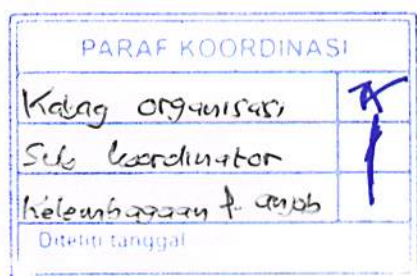 PARAF KOORDINASI
Kabag organisasi
Sub koordinator
Kelembagaan & anjab
Diteliti tanggal